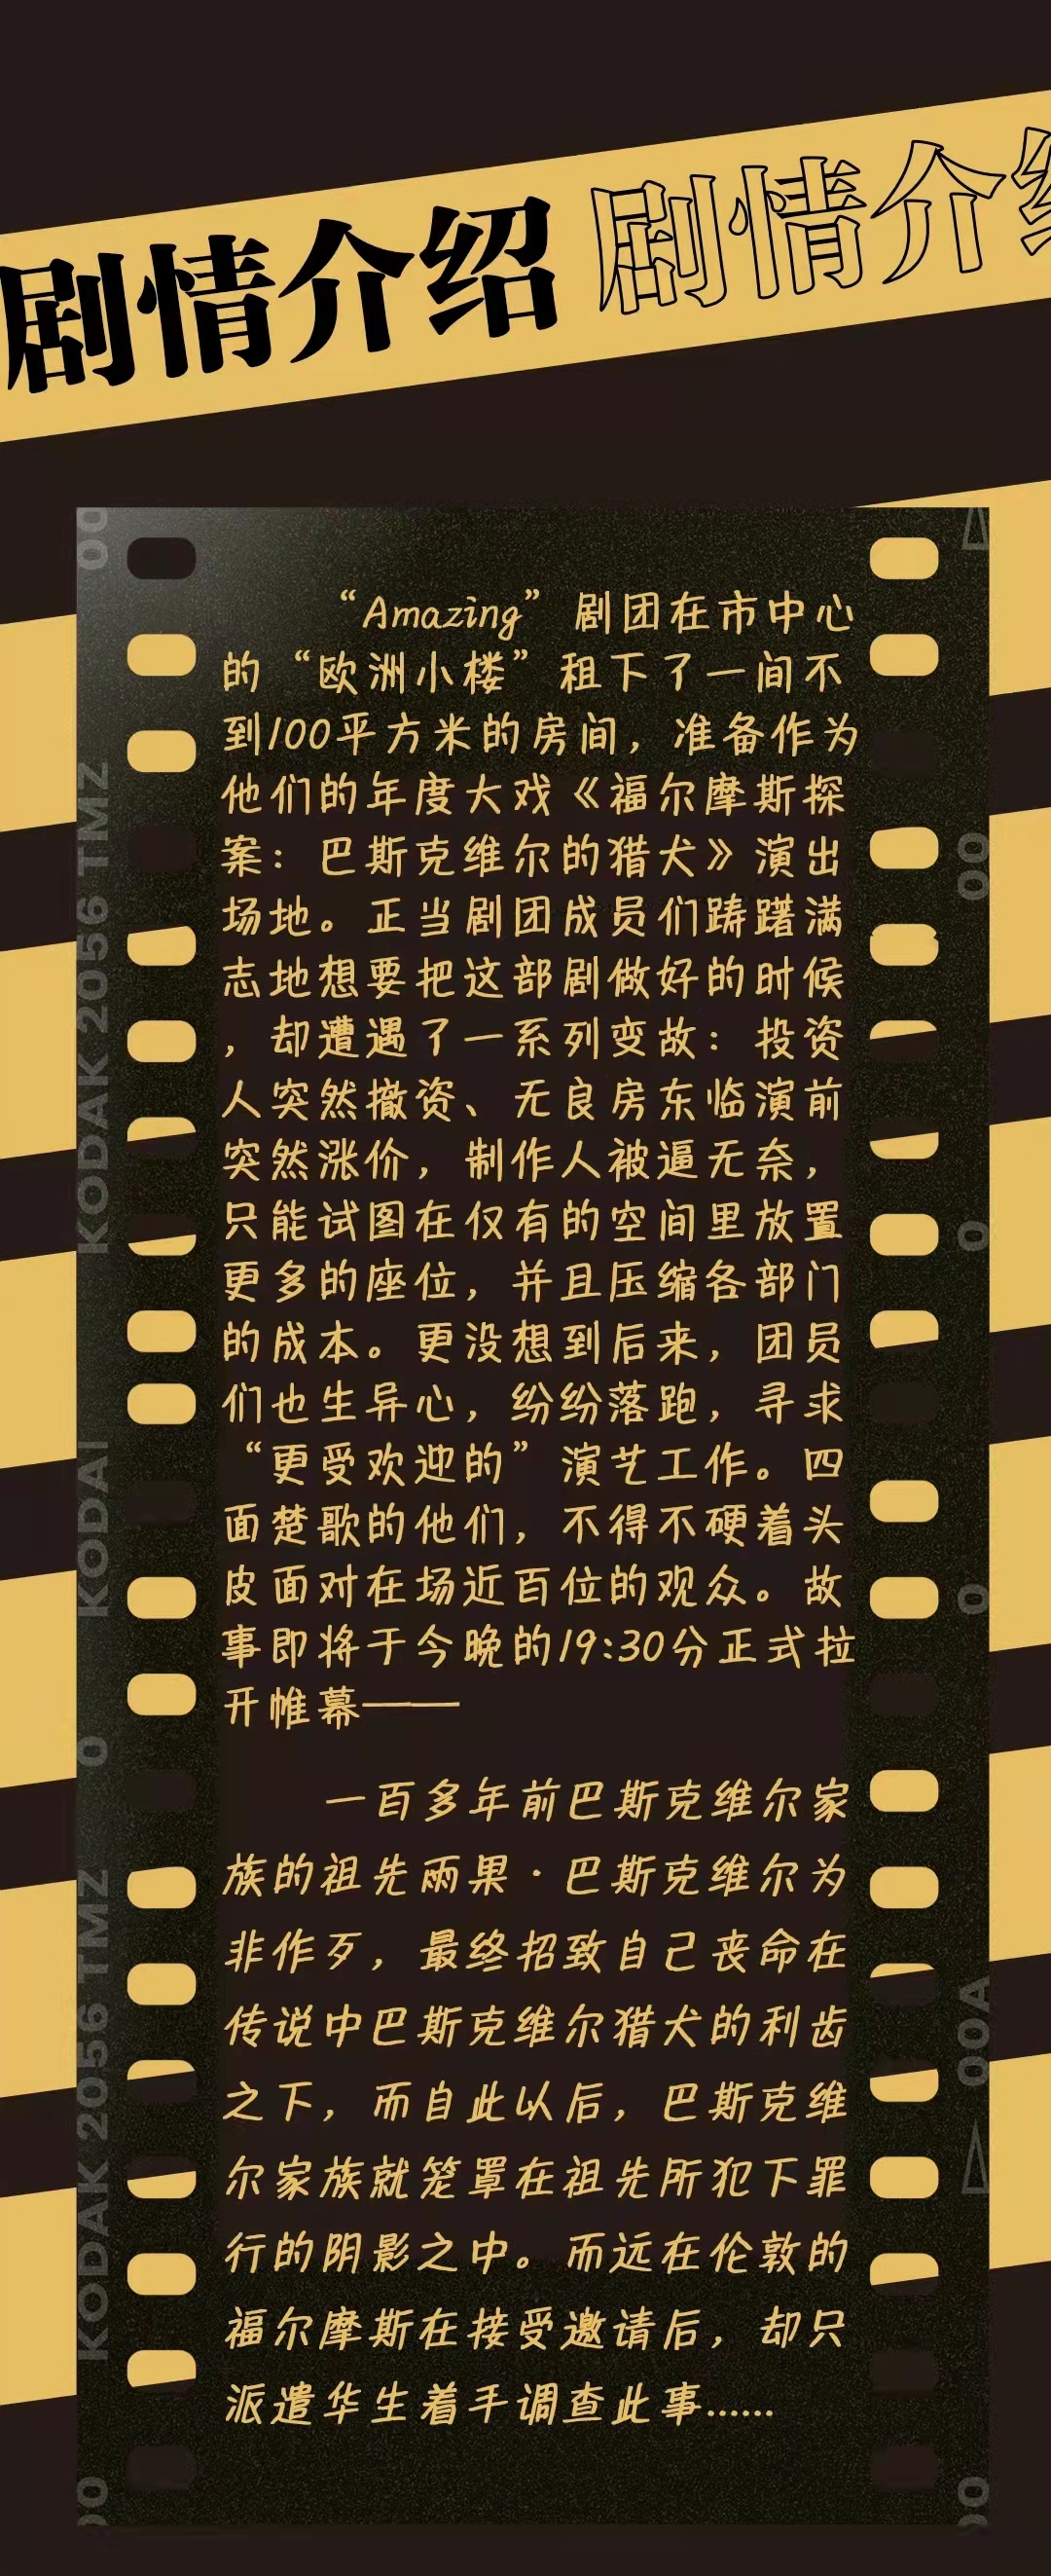 剧情介绍 剧情介绍
“Amazing”剧团在市中心
的“欧洲小楼”租下了一间不
到100平方米的房间，准备作为
他们的年度大戏《福尔摩斯探
案：巴斯克维尔的猎犬》演出
场地。正当剧团成员们踌躇满
志地想要把这部剧做好的时候
，却遭遇了一系列变故：投资
人突然撤资、无良房东临演前
突然涨价，制作人被逼无奈，
只能试图在仅有的空间里放置
更多的座位，并且压缩各部门
的成本。更没想到后来，团员
们也生异心，纷纷落跑，寻求
“更受欢迎的”演艺工作。四
面楚歌的他们，不得不硬着头
皮面对在场近百位的观众。故
事即将于今晚的19:30分正式拉
开帷幕——
一百多年前巴斯克维尔家
族的祖先雨果·巴斯克维尔为
非作歹，最终招致自己丧命在
传说中巴斯克维尔猎犬的利齿
之下，而自此以后，巴斯克维
尔家族就笼罩在祖先所犯下罪
行的阴影之中。而远在伦敦的
福尔摩斯在接受邀请后，却只
派遣华生着手调查此事……
00
KODAK 2056 TMZ
KODAI
0
KODAK 2056 TMZ
00
00
0
0
00A
00